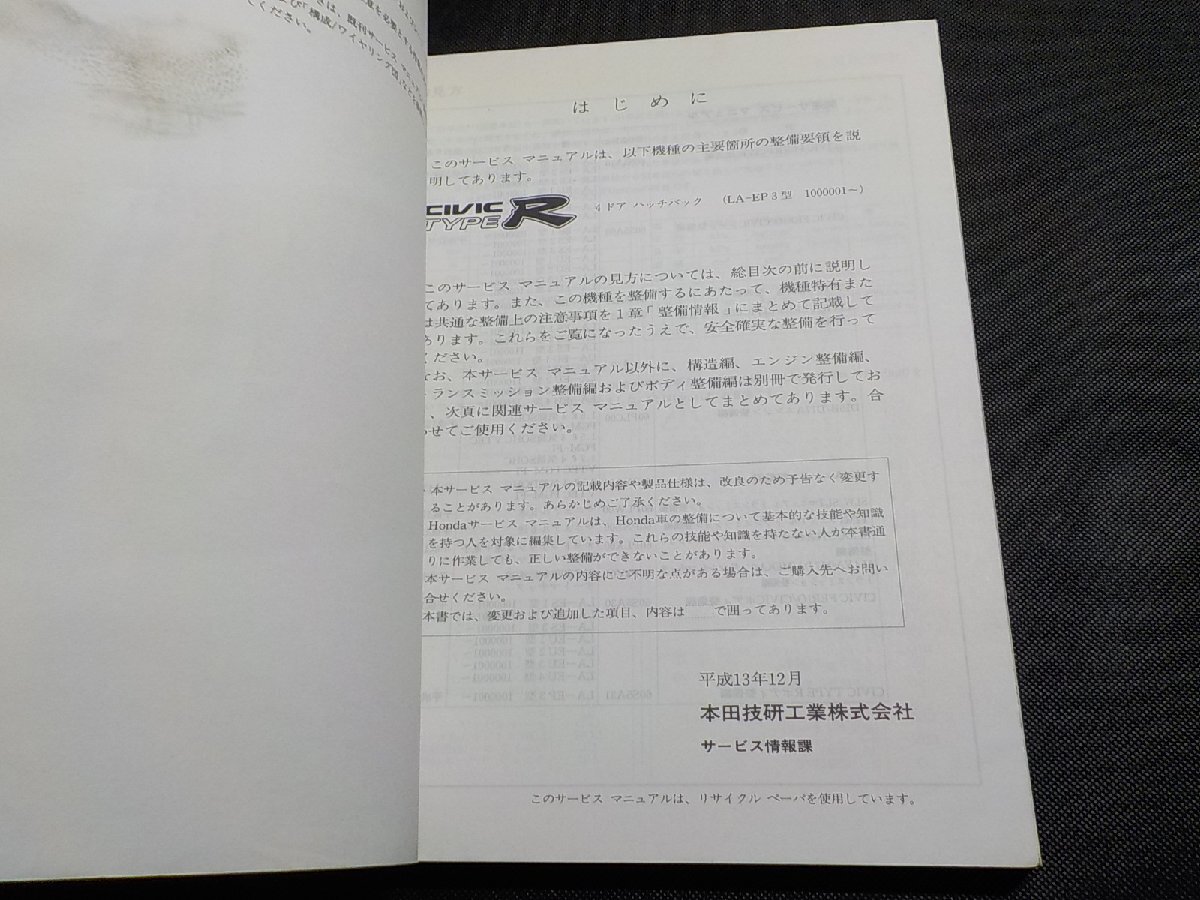 は じ め に
このサービス マニュアルは、以下機種の主要箇所の整備要領を説
明してあります。
CIVIC TYPE R
ドア ハッチバック （LA-EP3型 1000001～）
このサービス マニュアルの見方については、総目次の前に説明し
てあります。また、この機種を整備するにあたって、機種特有また
は共通な整備上の注意事項を1章「整備情報」にまとめて記載して
あります。これらをご覧になったうえで、安全確実な整備を行って
ください。
なお、本サービス マニュアル以外に、構造編、エンジン整備編、
トランスミッション整備編およびボディ整備編は別冊で発行してお
、次頁に関連サービス マニュアルとしてまとめてあります。合
わせてご使用ください。
本サービス マニュアルの記載内容や製品仕様は、改良のため予告なく変更す
ることがあります。あらかじめご了承ください。
Hondaサービス マニュアルは、Honda車の整備について基本的な技能や知識
を持つ人を対象に編集しています。これらの技能や知識を持たない人が本書通
りに作業しても、正しい整備ができないことがあります。
本サービス マニュアルの内容にご不明な点がある場合は、ご購入先へお問い
合せください。
本書では、変更および追加した項目、内容は　　で囲ってあります。
平成13年12月
本田技研工業株式会社
サービス情報課
このサービス マニュアルは、リサイクル ペーパを使用しています。